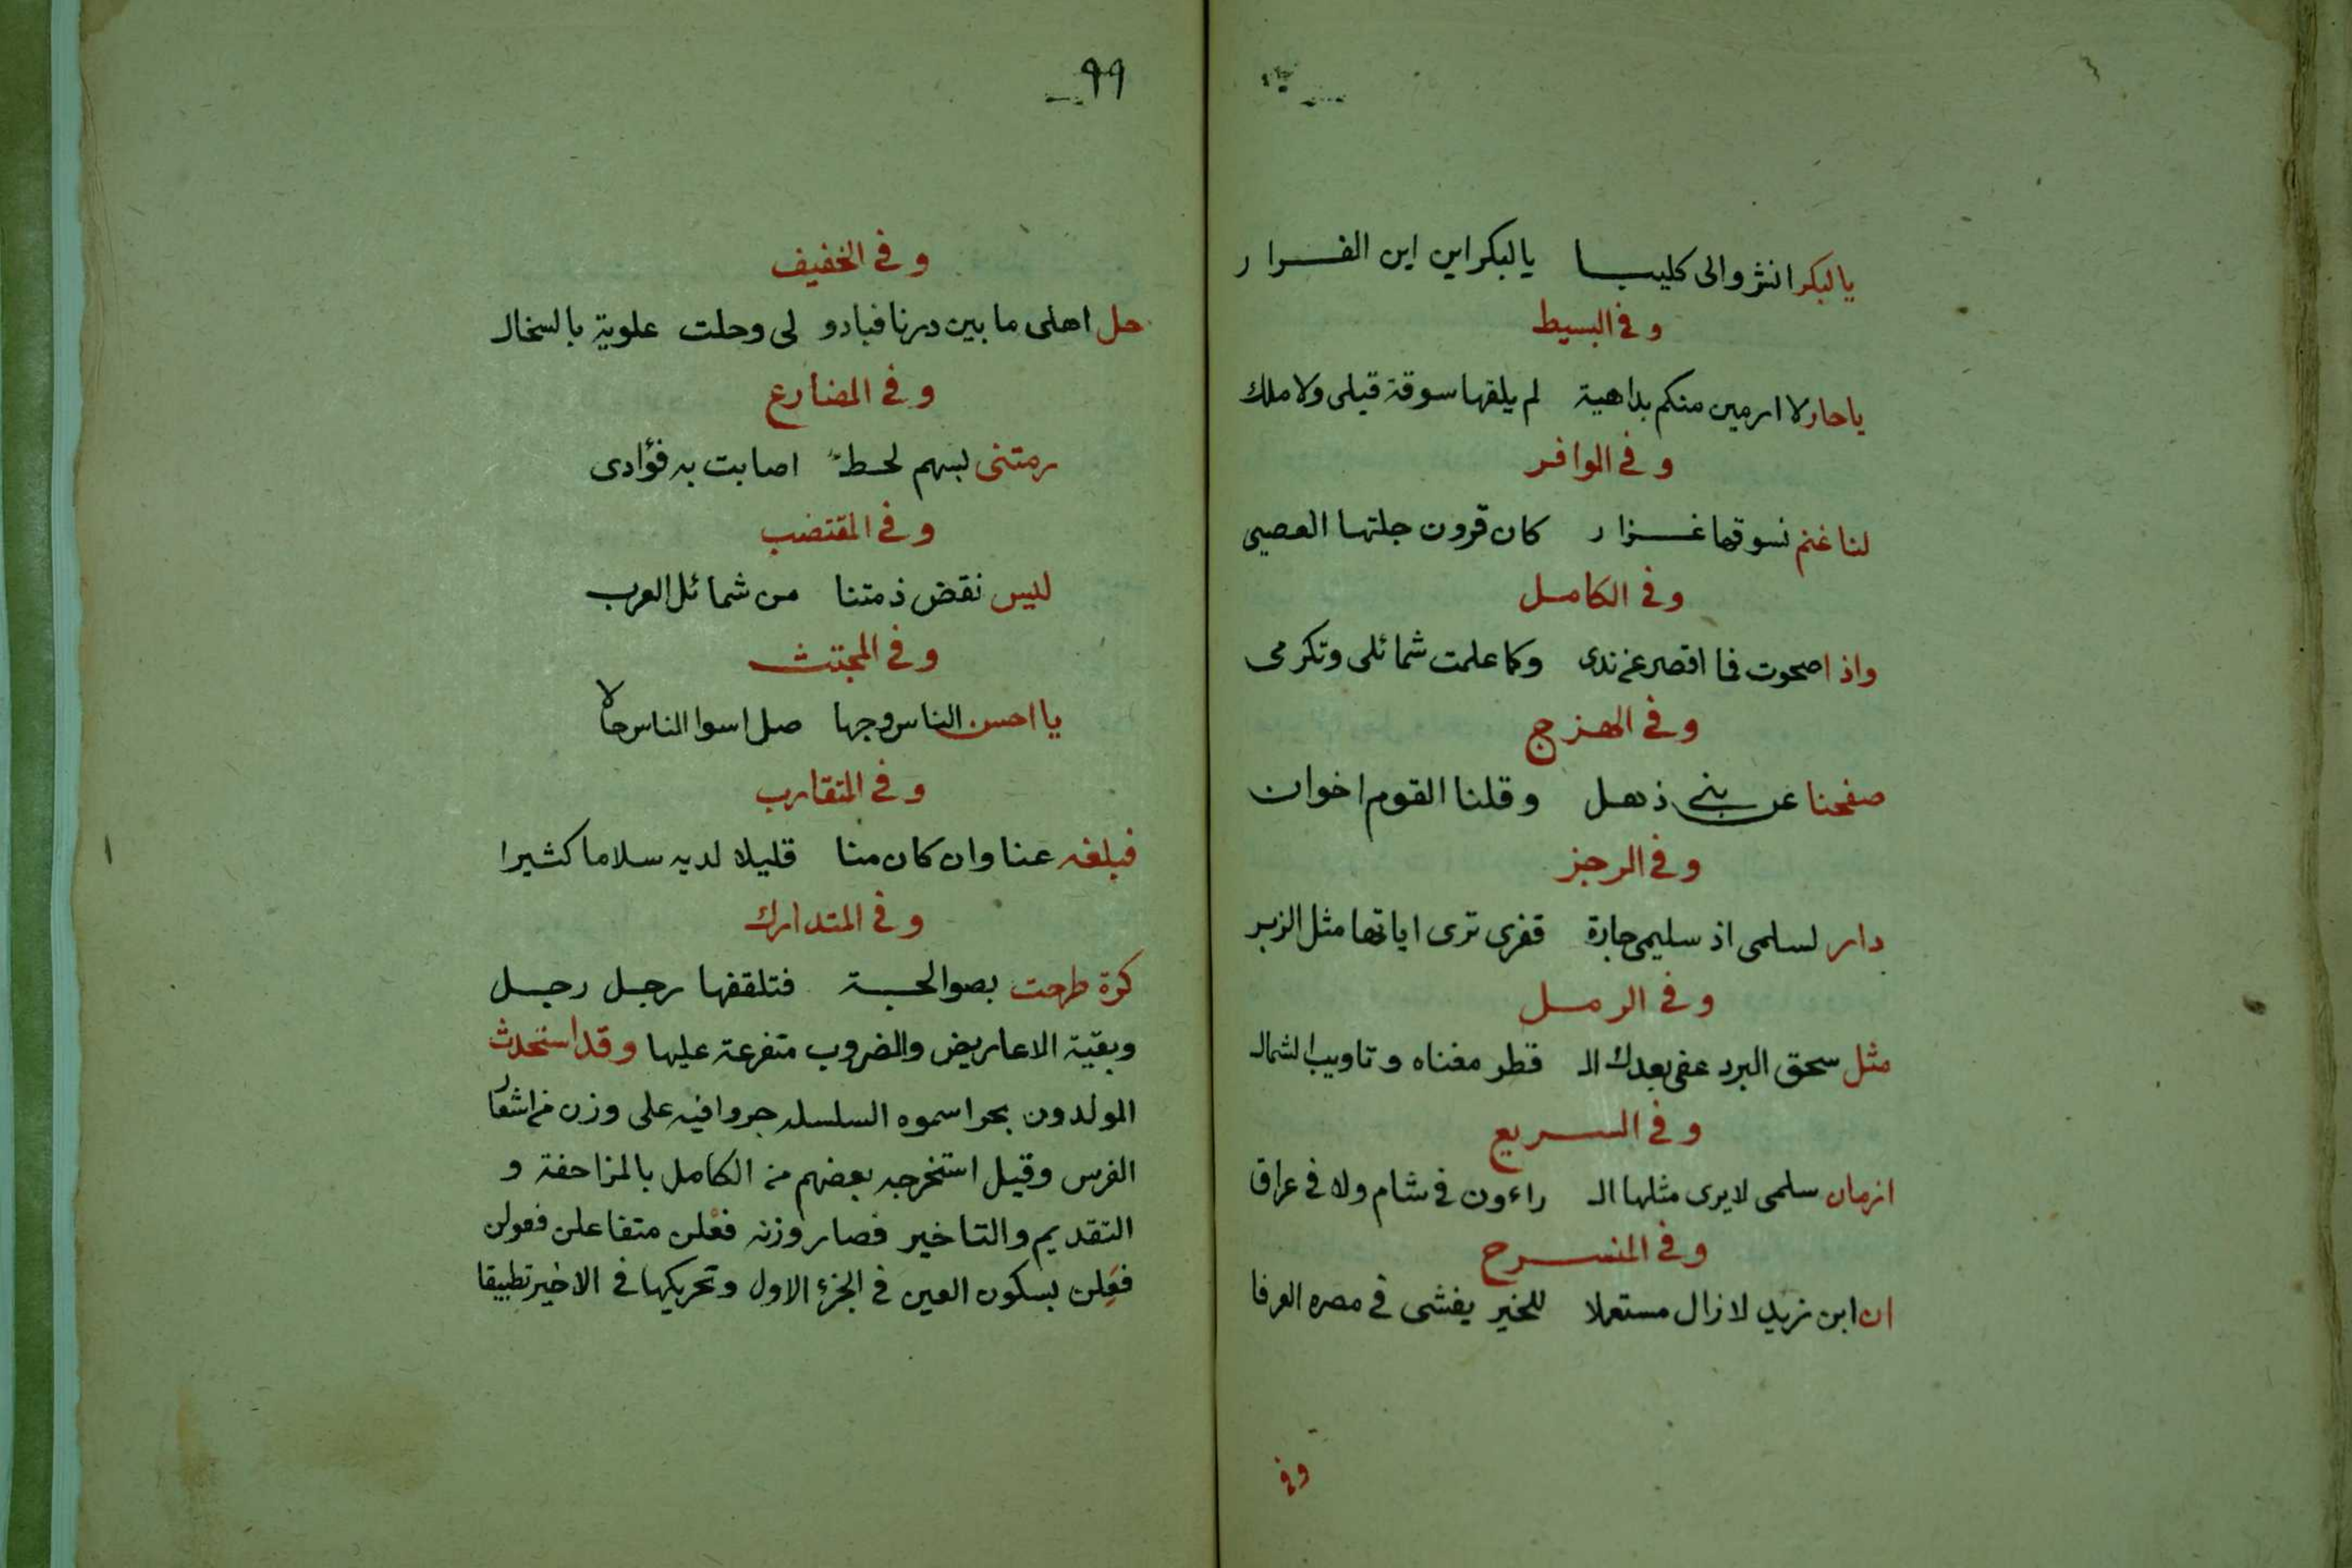 يالبكر انشروالى كليبا يالبكر اين اين الفرار
وفى البسيط
ياحار لا ارمين منكم بداهية لم يلقها سوقة قبلى ولا ملك
وفى الوافر
لنا غنم نسوقها غزار كان قرون جلتها العصى
وفى الكامل
واذا صحوت فما اقصر عن ندى وكما علمت شمائلى وتكرمى
وفى الهزج
صفحنا عن بنى ذهل وقلنا القوم اخوان
وفى الرجز
دار لسلمى اذ سليمى جارة قفرى ترى اياتها مثل الزبر
وفى الرمل
مثل سحق البرد عفى بعدك الـ قطر مغناه وتاويب الشمال
وفى السريع
ازمان سلمى لا يرى مثلها الـ راءون فى شام ولا فى عراق
وفى المنسرح
ان ابن زيد لا زال مستعملا للخير يفشى فى مصره العرفا
وفى
٩٩
وفى الخفيف
حل اهلى ما بين درنا فبادو لى وحلت علوية بالسخال
وفى المضارع
رمتنى بسهم لحظ اصابت به فؤادى
وفى المقتضب
ليس نقض ذمتنا من شمائل العرب
وفى المجتث
يا احسن الناس وجها صل اسوا الناس حالا
وفى المتقارب
فبلغه عنا وان كان منا قليلا لديه سلاما كثيرا
وفى المتدارك
كرة طرحت بصوالجة فتلقفها رجل رجل
وبقية الاعاريض والضروب متفرعة عليها وقد استحدث
المولدون بحرا سموه السلسله جروا فيه على وزن من اشعار
الفرس وقيل استخرجه بعضهم من الكامل بالمزاحفة و
التقديم والتاخير فصار وزنه فعْلن متفاعلن فعولن
فعِلن بسكون العين فى الجزء الاول وتحريكها فى الاخير تطبيقا